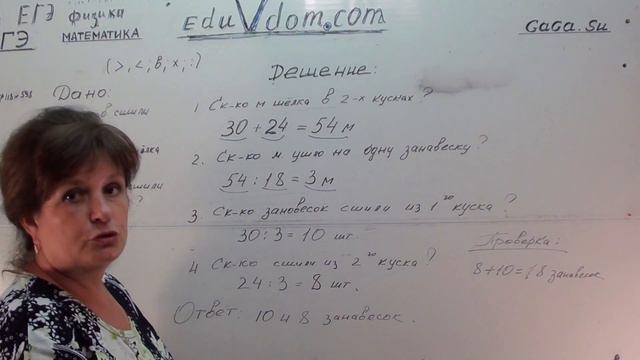 ЕГЭ физика
ГЭ МАТЕМАТИКА
EduVdom.com
GaGa.Su
(>,<; в; х; :)
Дано:
Решение:
в сшили
1 Ск-ко м шёлка в 2-х кусках?
30 + 24 = 54 м
2. Ск-ко м. ушло на одну занавеску?
54 : 18 = 3 м
3 Ск-ко зановесок сшили из 1го куска?
30 : 3 = 10 шт.
4 Ск-ко сшили из 2го куска?
24 : 3 = 8 шт.
Проверка:
8+10=18 занавесок
Ответ: 10 и 8 занавесок.